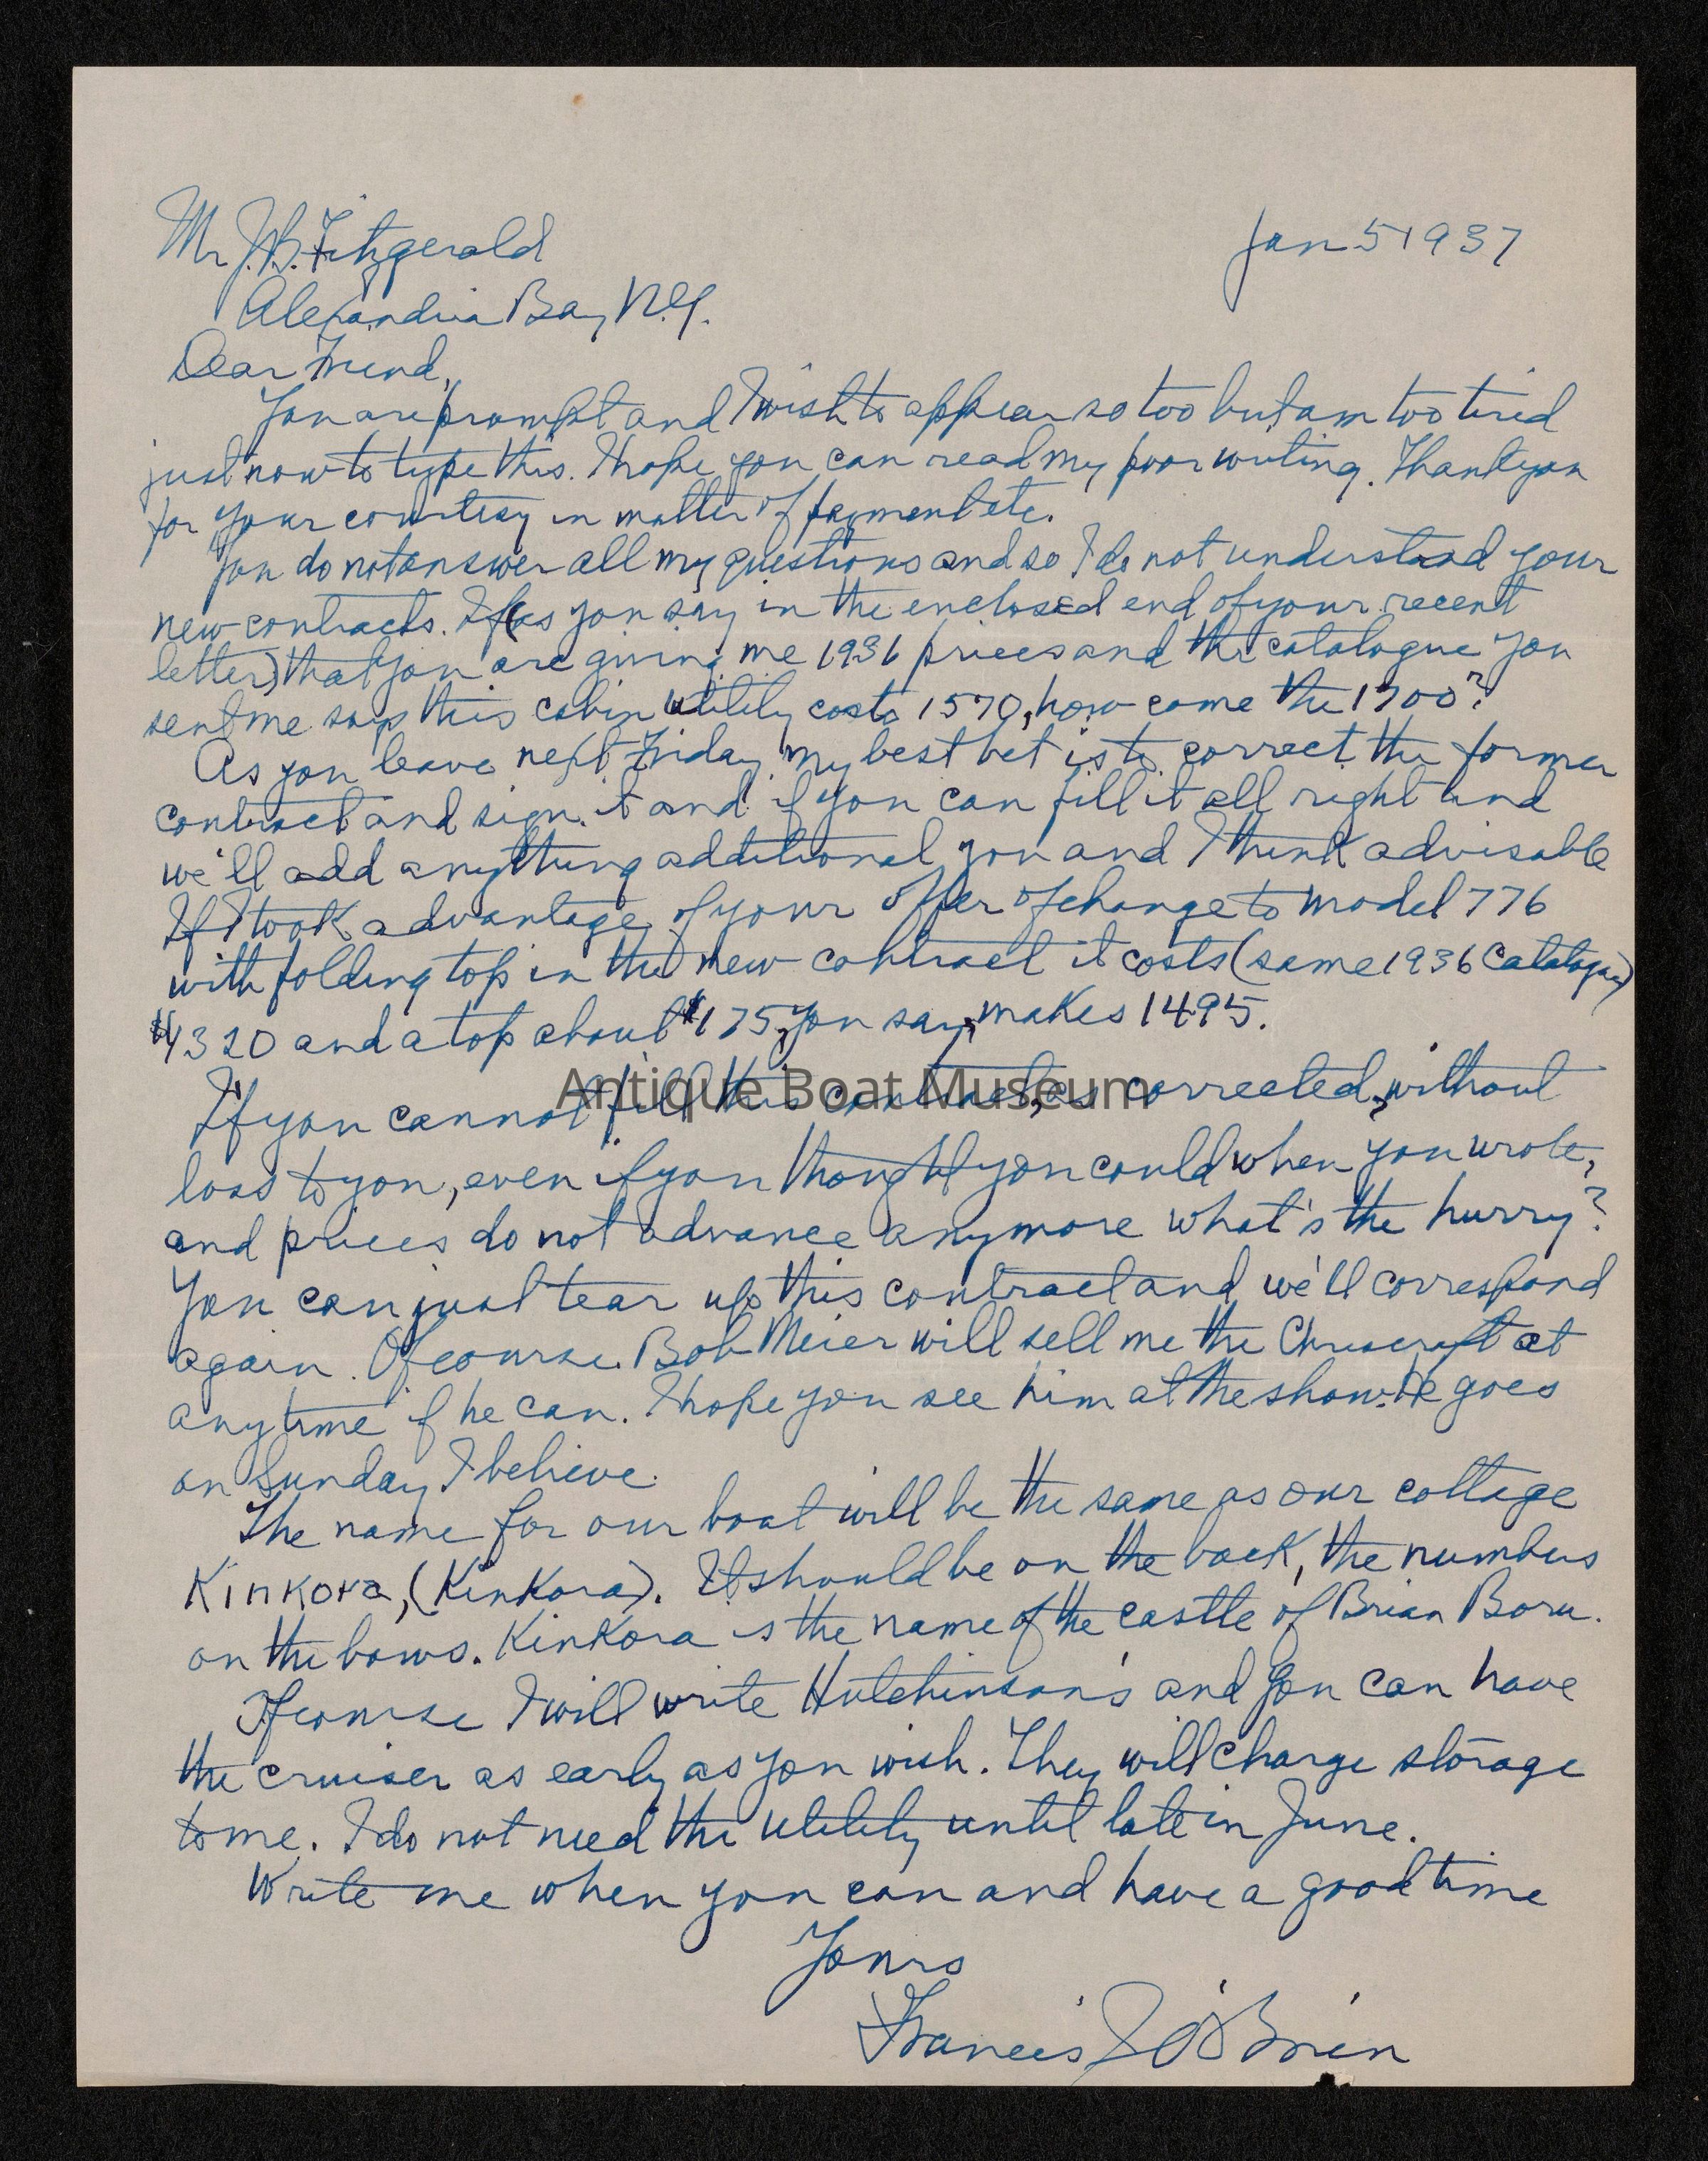 Mr J.B. Fitzgerald
Jan 5 1937
Alexandria Bay N.Y.
Dear Friend,
You are prompt and I wish to appear so too but am too tired
just now to type this. I hope you can read my poor writing. Thank you
for your courtesy in matter of payment etc.
You do not answer all my questions and so I do not understand your
new contracts. If (as you say in the enclosed end of your recent
letter) that you are giving me 1936 prices and the catalogue you
sent me says this cabin utility costs 1570, how come the 1700?
As you leave next Friday my best bet is to correct the former
contract and sign it and if you can fill it all right and
we'll add anything additional you and I think advisable
If I took advantage of your offer of change to model 776
with folding top in the new contract it costs (same 1936 catalogue)
$1320 and a top about $175, you say, makes 1495.
Antique Boat Museum
If you cannot fill this contract, as corrected, without
loss to you, even if you thought you could when you wrote,
and prices do not advance anymore what's the hurry?
You can just tear up this contract and we'll correspond
again. Of course Bob Meier will sell me the Chriscraft at
anytime if he can. I hope you see him at the show. He goes
on Sunday I believe.
The name for our boat will be the same as our cottage
Kinkora, (Kinkora). It should be on the back, the numbers
on the bows. Kinkora is the name of the castle of Brian Boru.
Of course I will write Hutchinson's and you can have
the cruiser as early as you wish. They will charge storage
to me. I do not need the utility until late in June.
Write me when you can and have a good time
Yours
Francis J O'Brien